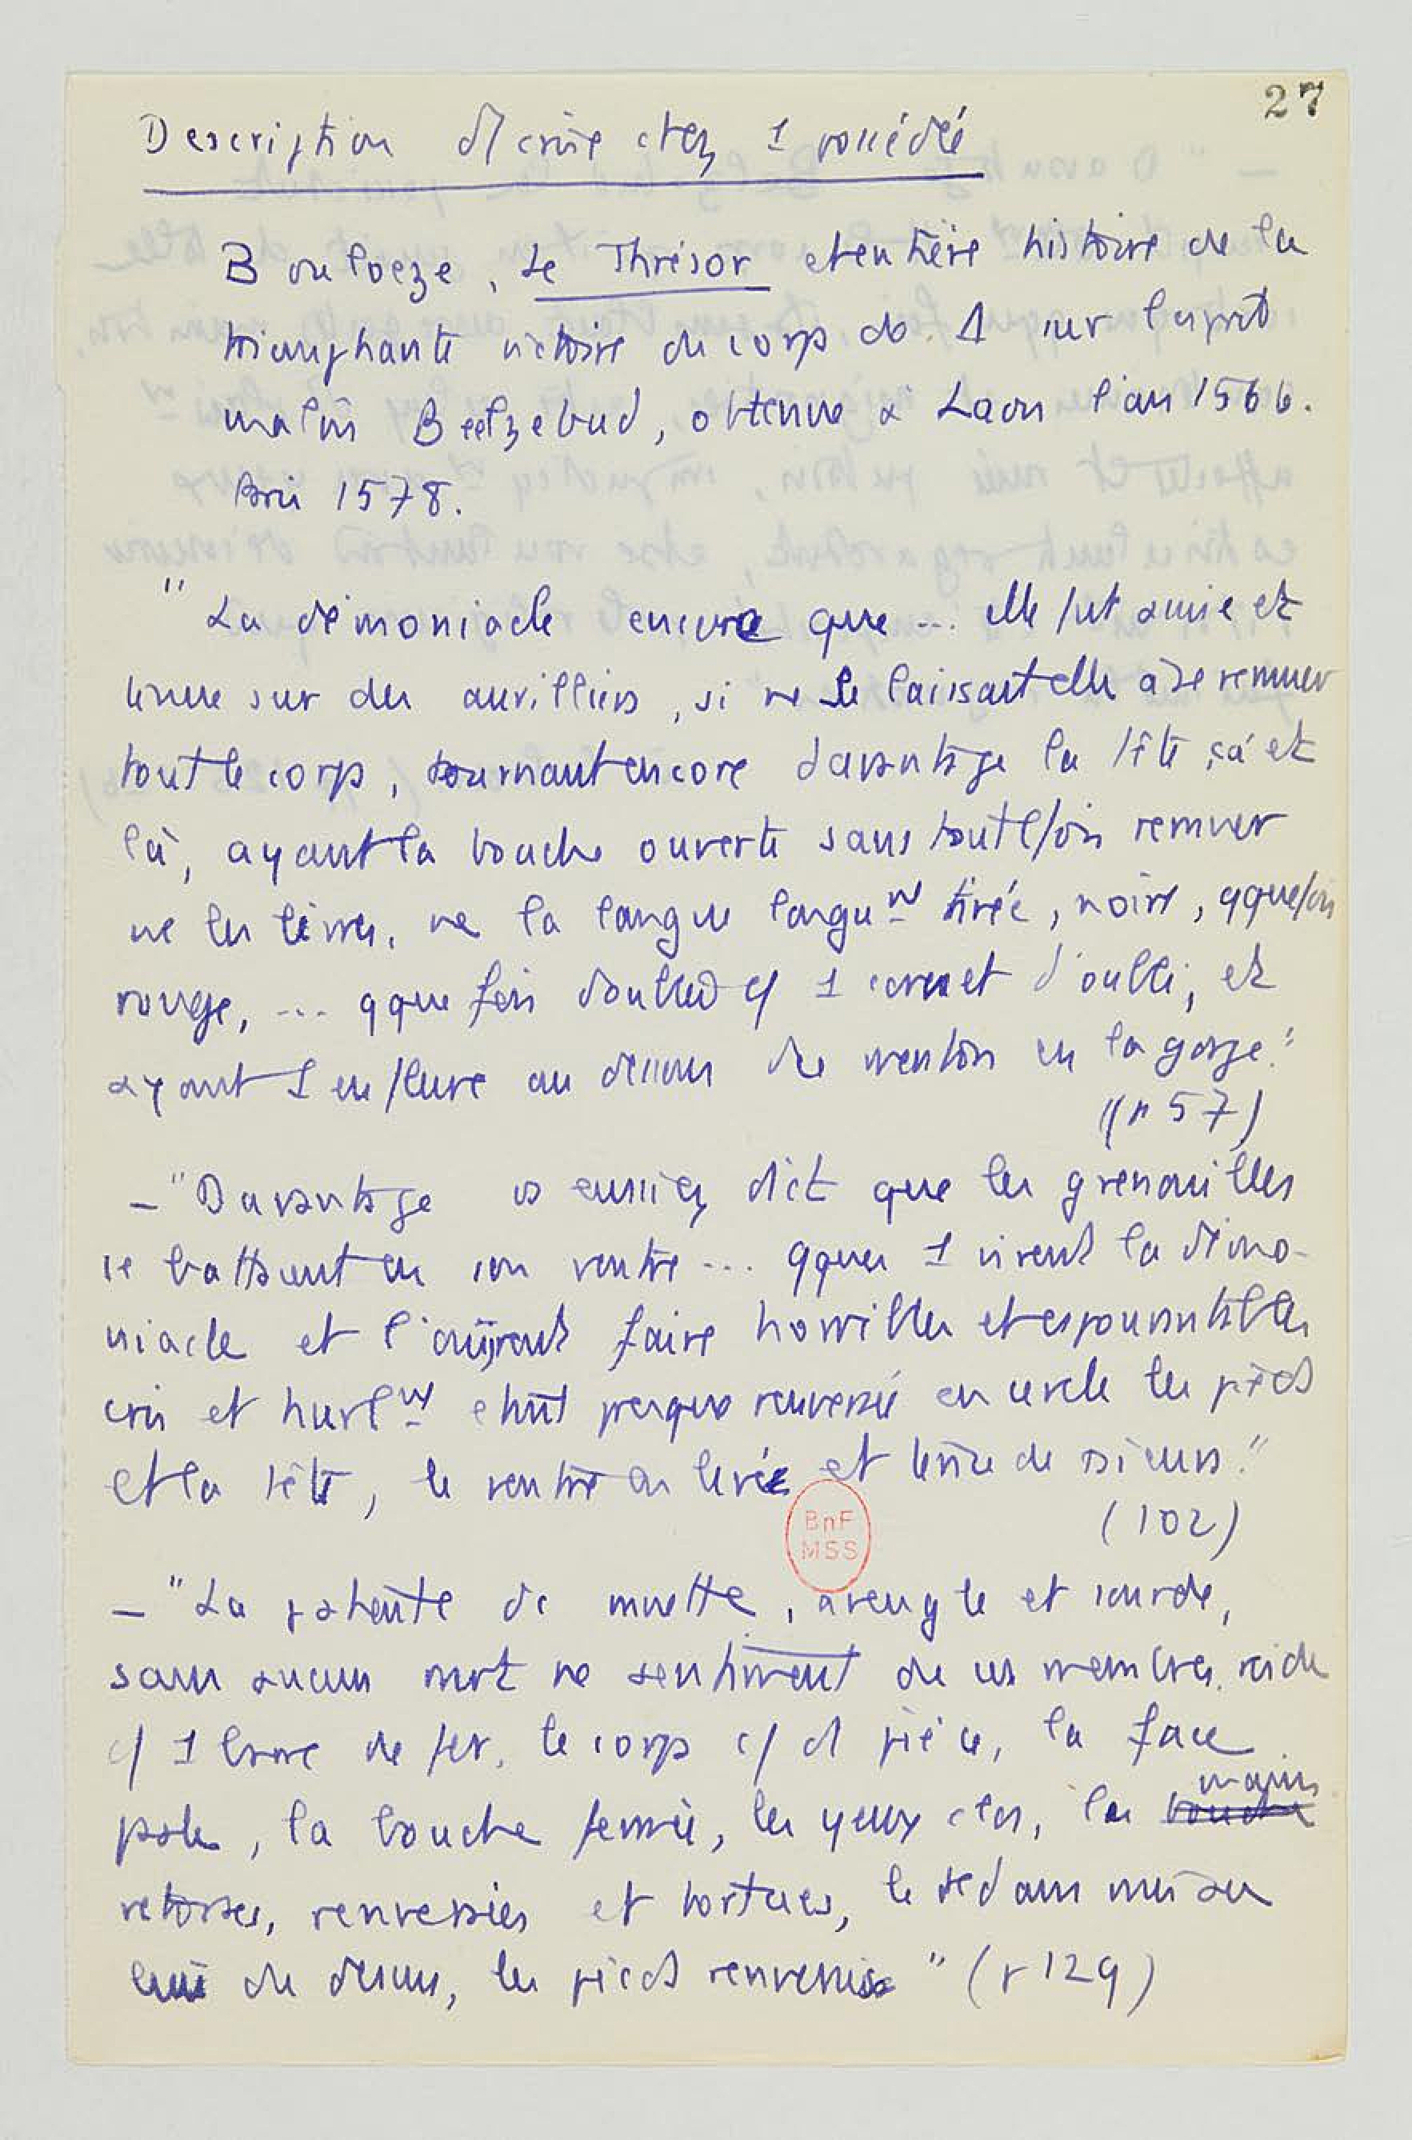 27
Description d'1 crise chez 1 possédée
Boulaeze, Le Thrésor et entière histoire de la
triomphante victoire du corps de D. sur l'esprit
malin Beelzebud, obtenue à Laon l'an 1566.
Paris 1578.
"La démoniacle encore que... elle fut assise et
tenue sur des aurilliers, si ne se laissait elle à se remuer
tout le corps, tournant encore davantage la tête çà et
là, ayant la bouche ouverte sans toutefois remuer
ne les lèvres, ne la langue longuemt tirée, noire, qquefois
rouge, ... qque fois doublée c/ 1 cornet d'oubli, et
ayant 1 enflure au dessous du menton en la gorge."
(p 57)
— "Davantage vs eussiez dict que les grenouilles
se battaient en son ventre... qques 1 virent la démo-
niacle et l'ouïrent faire horribles et espouvantables
cris et hurlmt étant presque renversée en cercle les pieds
et la tête, le ventre en levée et
(102)
— "La patiente de muette, aveugle et sourde,
sans aucun mot ne sentiment de ses membres, roide
c/ 1 barre de fer, le corps c/ d'1 pièce, la face
pâle, la bouche fermée, les yeux clos, les bouche mains
retorses, renversées et tortues, le dedans mis au
lieu du dessus, les pieds renversés" (p 129)
BnF
MSS